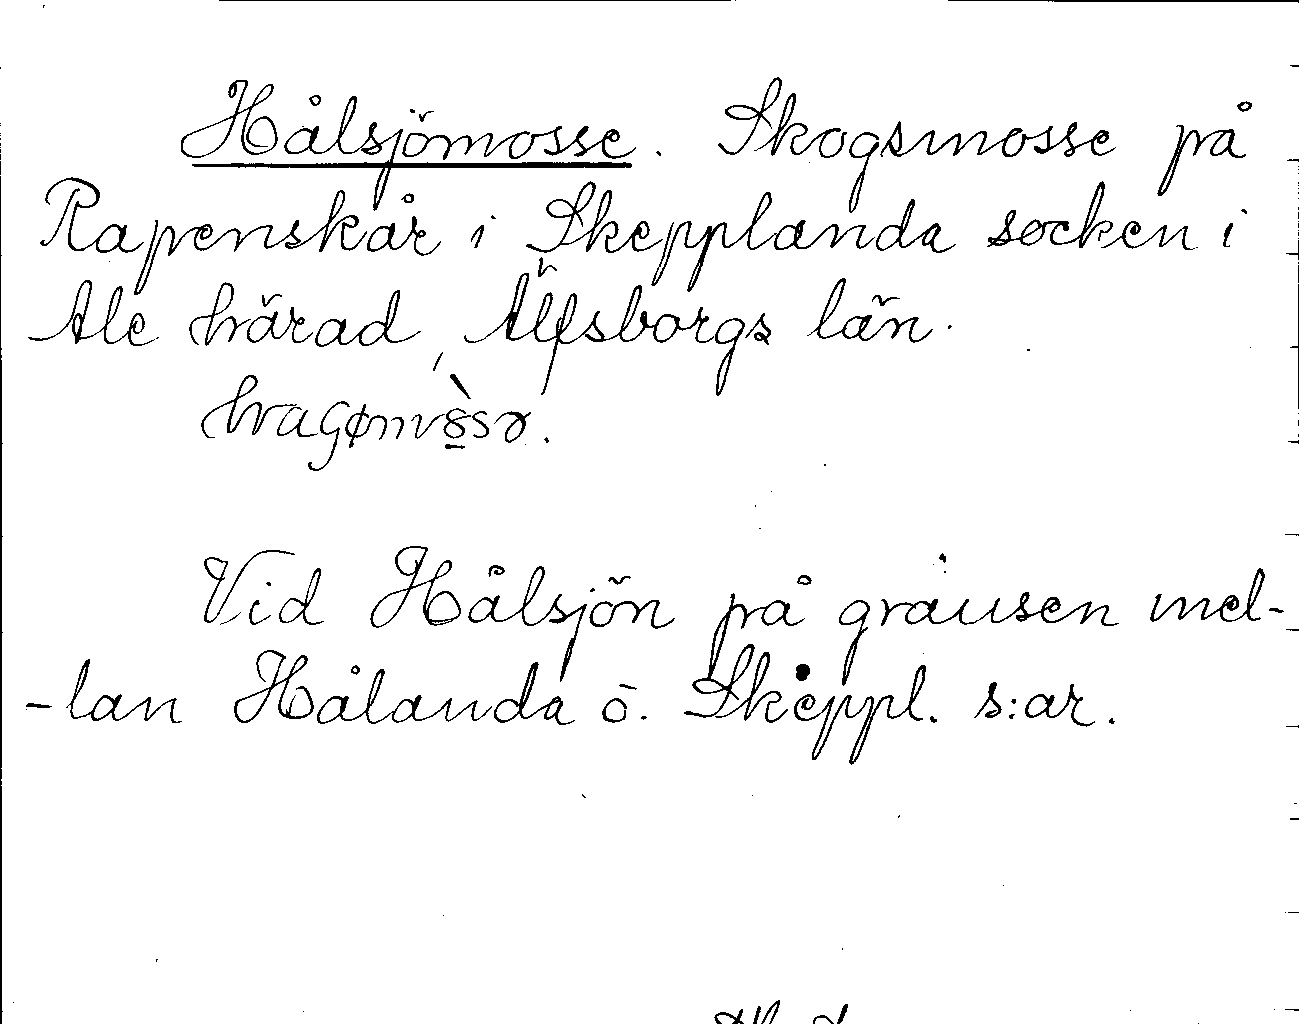 Hålsjömosse. Skogsmosse på
Rapenskår i Skepplanda socken i
Ale härad, Älfsborgs län.
Vid Hålsjön på gränsen mel-
-lan Hålanda o. Skeppl. s:ar.